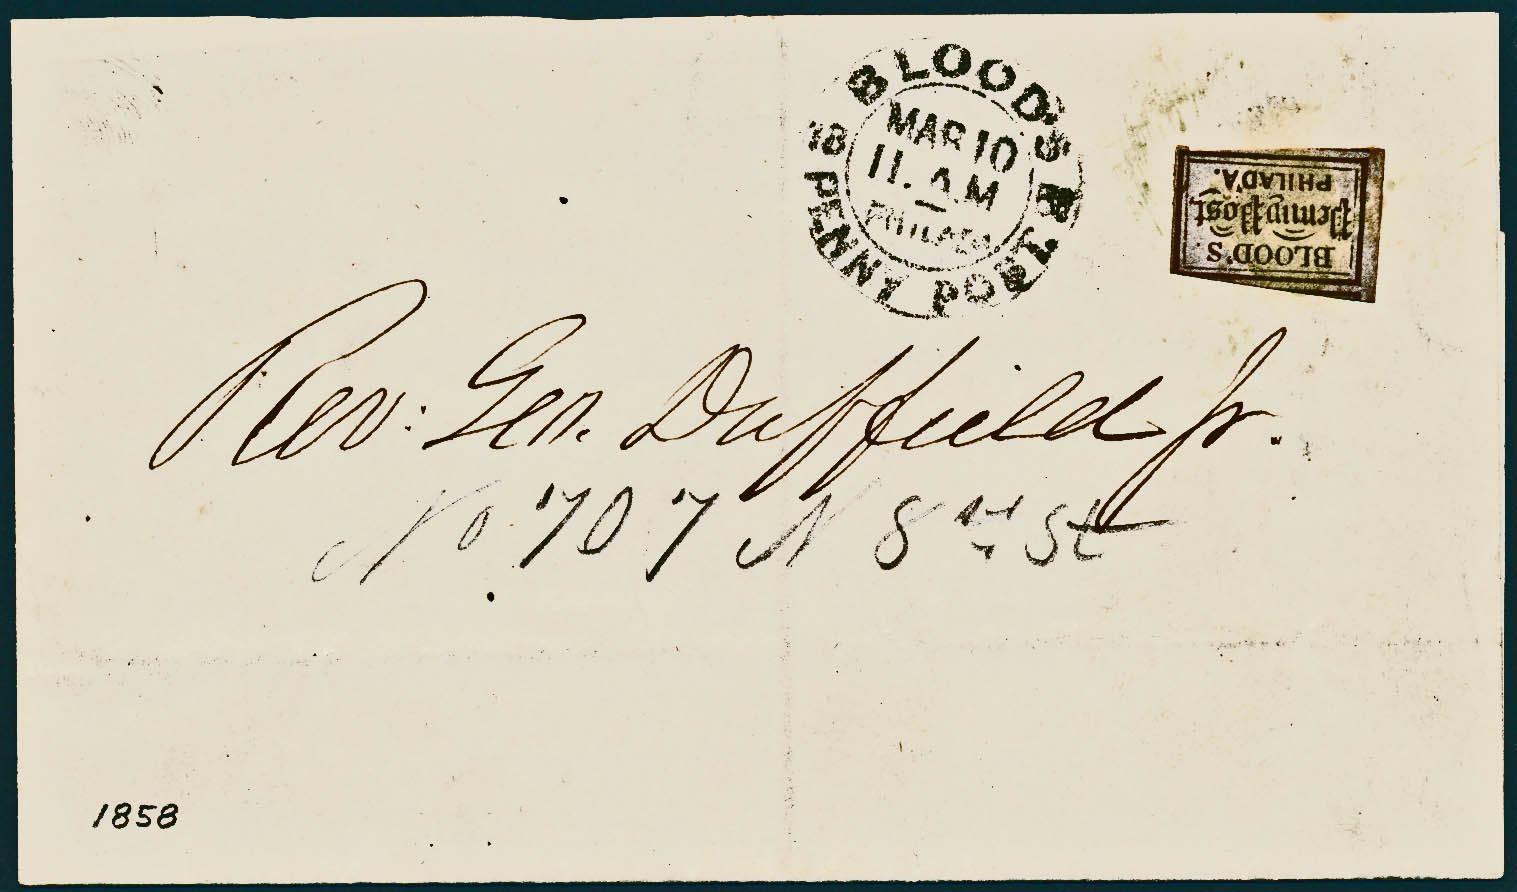 BLOOD'S PENNY POST
18
MAR 10
11. A.M
PHILADA
BLOOD'S
Penny Post,
PHILAD'A.
Rev: Geo. Duffield Jr.
No 707 N 8th St
1858